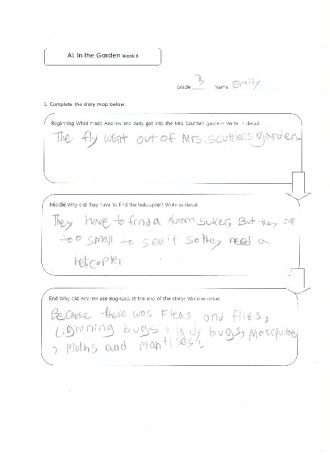 A1 In the Garden Week 8
Grade 3 Name emily
1. Complete the story map below.
Beginning What made Andrew and Judy get into the Mrs. Scuttle's garden? Write in detail.
The fly went out of Mrs. scuttle's garden.
Middle Why did they have to find the helicopter? Write in detail.
They have to find a Atom suker, But they are
too small to see it so they need a
helicopter
End Why did Andrew use Bug-Goo at the end of the story? Write in detail.
Because there was Fleas and flies,
Lightning bugs, lady bugs, Mosquitoes
, Moths and Mantises.